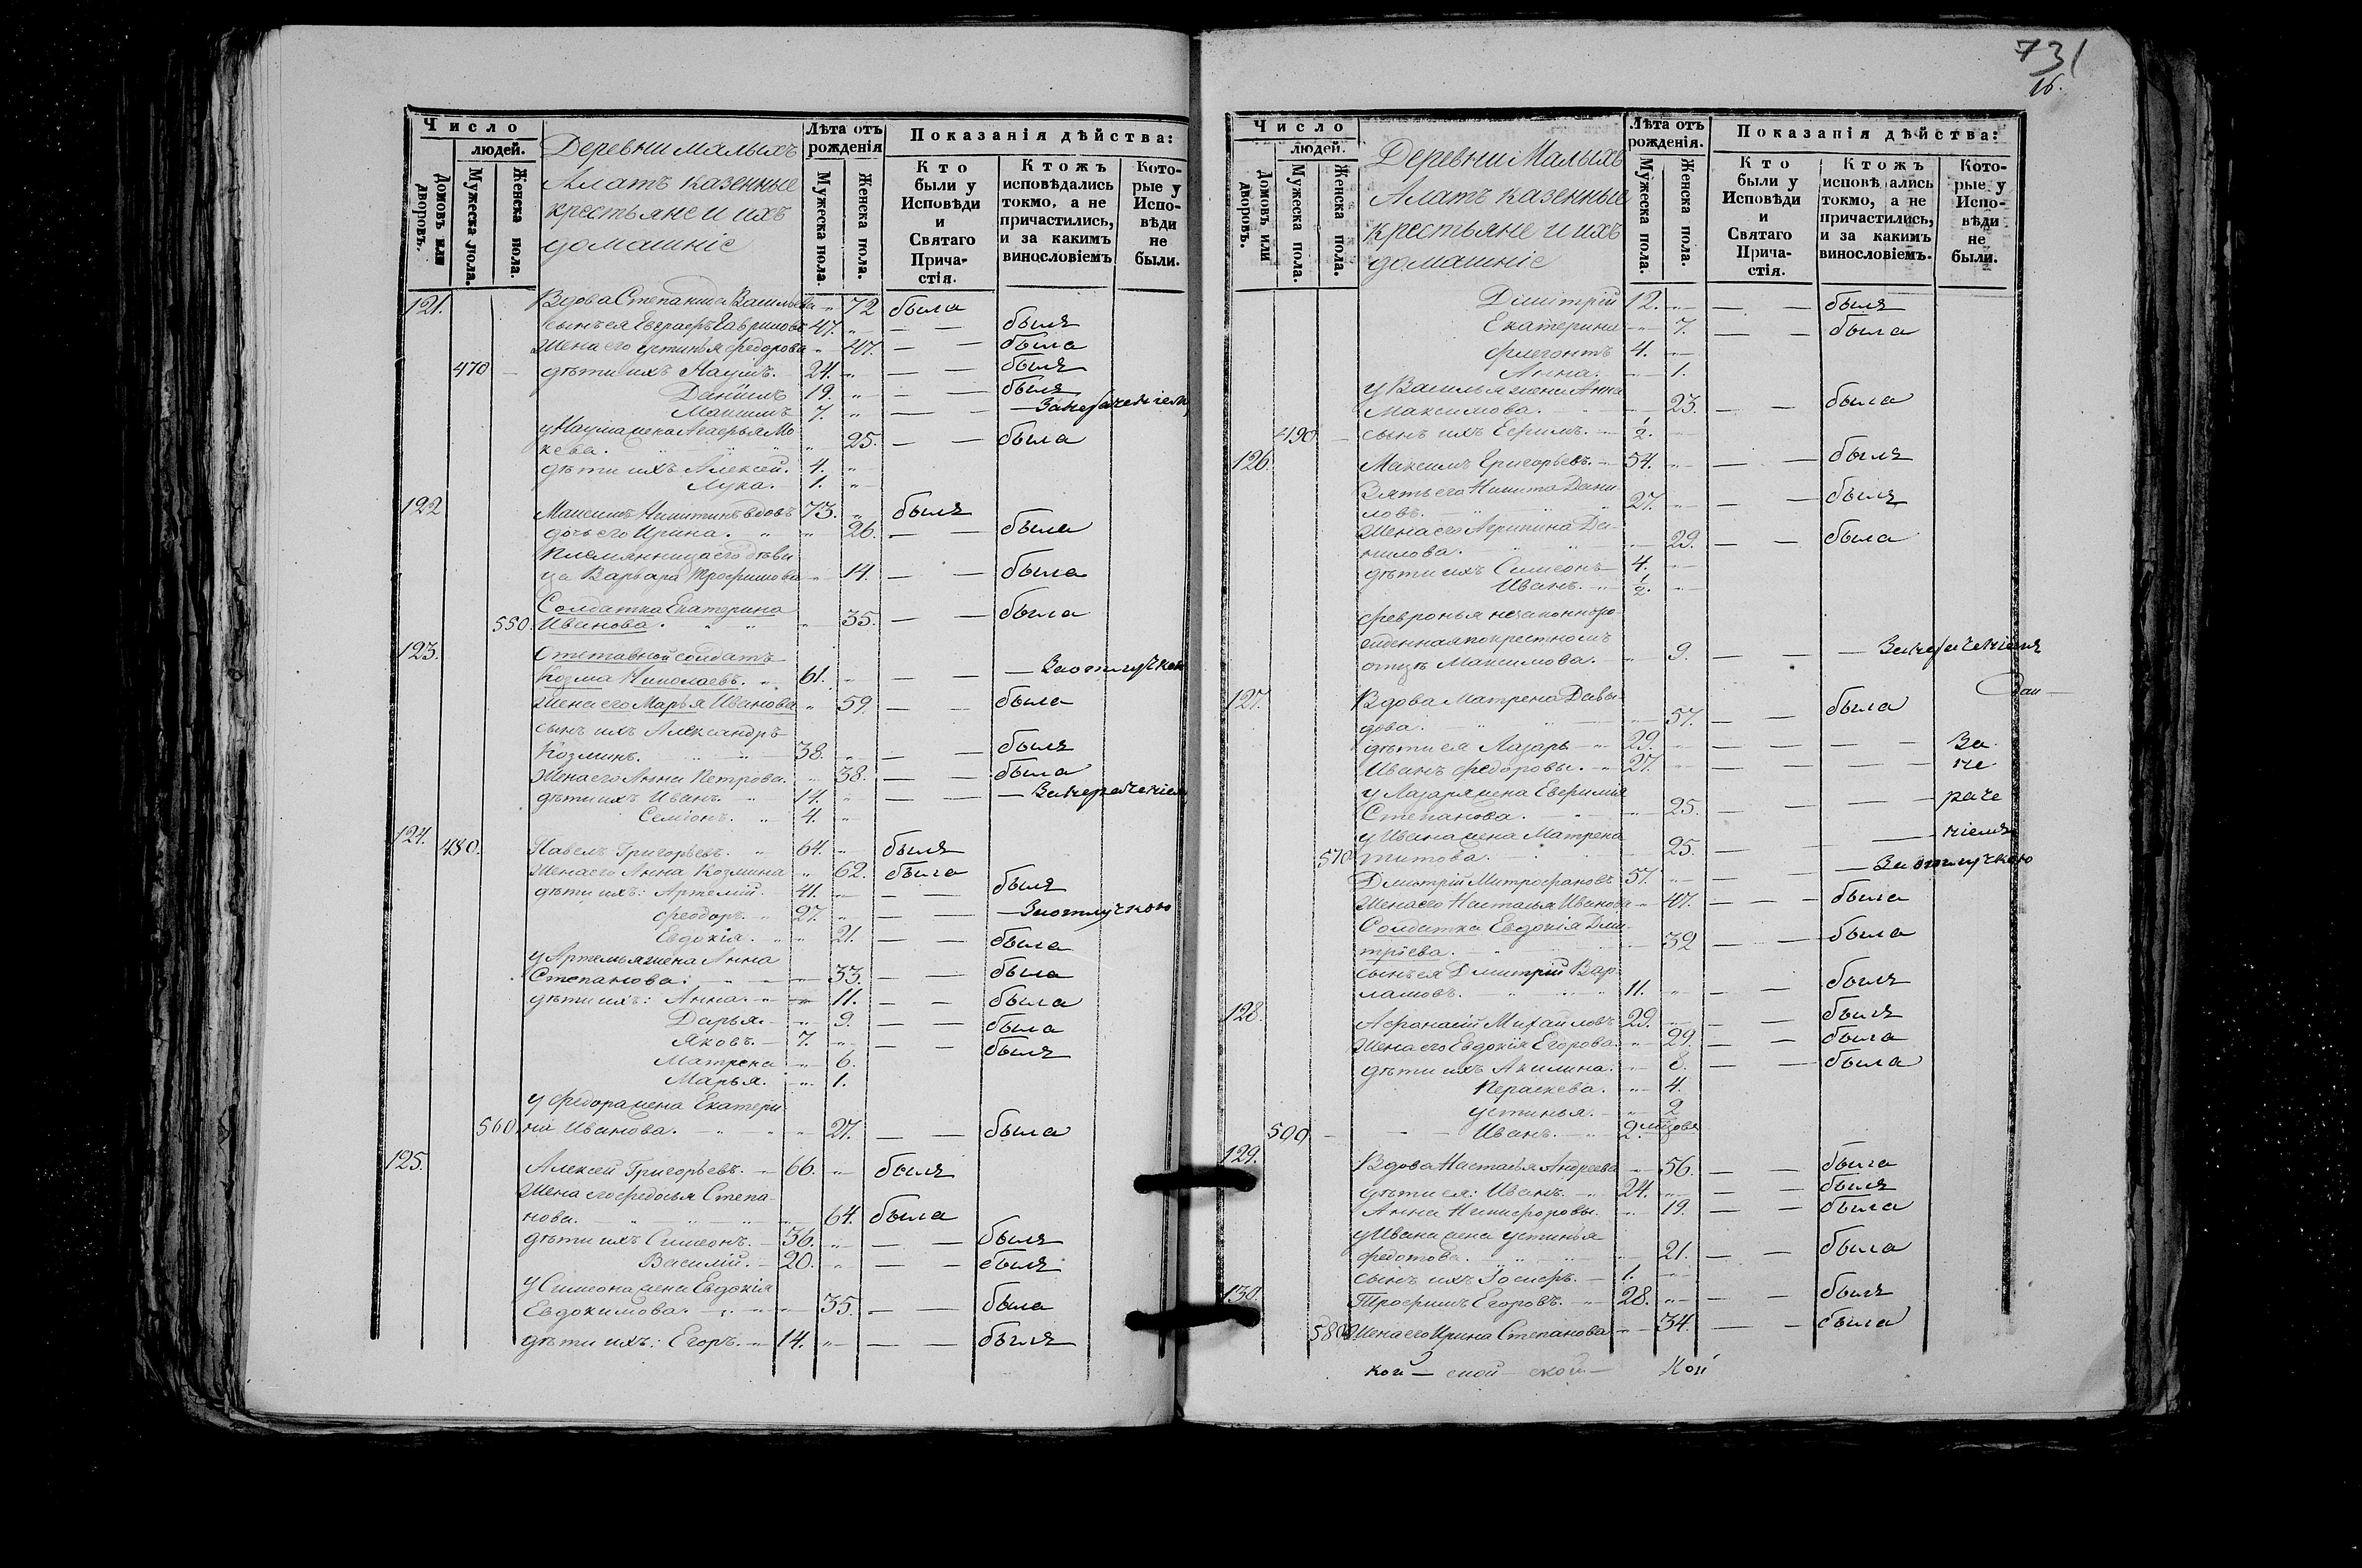 Число
людей.
Домовъ или дворовъ.
Мужеска пола.
Женска пола.
Деревни Малыхъ
Алатъ казенные
крестьяне и ихъ
домашніе
Лѣта отъ
рожденія
Мужеска пола.
Женска пола.
Показанія дѣйства:
Кто
были у
Исповѣди
и
Святаго
Прича-
стія.
Ктожъ
исповѣдались
токмо, а не
причастились,
и за какимъ
винословіемъ
Кото-
рые у
Испо-
вѣди
не
были.
121. Вдова Степанида Васильева „ 72 была
сынъ ея Евграфъ Гавриловъ 47. „ — — былъ
Жена его Устинья Федорова „ 47. — — была
470 — дѣти ихъ Наумъ. 24. „ — — былъ
Даніилъ 19. „ — — былъ
Максимъ 7. „ — — — За нерачениемъ
у Наума жена Агафья Мо
кева. „ 25. — — была
дѣти ихъ Алексей. 4. „
Лука. — 1. „
122 Максимъ Никитинъ вдовъ 73. „ былъ
дочь его Ирина. „ „ 26. — — была
Племянница его дѣви
ца Варвара Трофимова — 14. — — была
Солдатка Екатерина
550. Иванова. „ „ — 35. — — была
123. Отставной солдатъ
Козма Николаевъ. „ 61. „ — — — За отлучкою
Жена его Марья Иванова „ 59. — — была
сынъ ихъ Александръ
Козминъ. 38. „ — — былъ
Жена его Анна Петрова. „ 38. — — была
дѣти ихъ Иванъ. — 14. „ — — — За нерачениемъ
Семіонъ. „ 4. „
124. 480. Павелъ Григорьевъ. „ 64. „ былъ
Жена его Анна Козмина „ 62. была
дѣти ихъ: Артемій. 41. „ — — былъ
Феодоръ. „ 27. „ — — — За отлучкою
Евдокія. „ „ 21. — — была
у Артемья жена Анна
Степанова. — „ — 33. — — была
дѣти ихъ: Анна. „ — 11. — — была
Дарья. — 9. — — была
Яковъ. — 7. „ — — былъ
Матрена — „ 6.
Марья. — „ 1.
у Федора жена Екатери
560. на Иванова. — „ „ 27. — — была
125. Алексей Григорьевъ. — 66. „ былъ
Жена его Федосья Степа-
нова. — „ „ 64. была
дѣти ихъ Симеонъ. — 36. „ — — былъ
Василій. — 20. „ — — былъ
у Симеона жена Евдокія
Евдокимова. — „ „ 35. — — была
дѣти ихъ: Егоръ. „ 14. „ — — былъ
731
16.
Число
людей.
Домовъ или дворовъ.
Мужеска пола.
Женска пола.
Деревни Малыхъ
Алатъ казенные
крестьяне и ихъ
домашніе
Лѣта отъ
рожденія.
Мужеска пола.
Женска пола.
Показанія дѣйства:
Кто
были у
Исповѣди
и
Святаго
Прича-
стія.
Ктожъ
исповѣ ались
токмо, а не
причастились,
и за какимъ
винословіемъ.
Кото-
рые у
Испо-
вѣди
не
были.
Дімітрій 12. „ — — былъ
Екатерина — 7. — — была
Флегонтъ 4. „
Анна. — 1.
у Василья жена Анна
Максимова. — 23. — — была
490 — сынъ ихъ Ефимъ. — 1/2. „
126. Максимъ Григорьевъ. — 54. „ — — былъ
Зять его Никита Дани
ловъ. — „ „ 27. „ — — былъ
Жена его Агрипина Да-
нилова. „ „ — 29. — — была
дѣти ихъ Симеонъ 4. „
Иванъ. „ 1/2. „
Февронья незаконноро-
жденная по крестномъ
отцѣ Максимова. — 9. — — — За нерачениемъ
127. Вдова Матрена Давы-
дова. „ „ — 57. — — была
дѣти ея Лазарь — „ 29. — — — — За
Иванъ Федоровы. „ 27. — — — — не
у Лазаря жена Евфимія
Степанова. — 25. — — — раче
у Ивана жена Матрена
570 Титова. — 25. — — — ніемъ
Дмитрій Митрофановъ 57. „ — — — За отлучкою
Жена его Настасья Иванова „ 47. — — — была
Солдатка Евдокія Дми-
тріева. — „ — 32 — — была
сынъ ея Дмитрій Вар-
ламовъ. — „ „ 11. „ — — былъ
128. Афонасій Михайловъ 29. „ — — былъ
Жена его Евдокія Егорова. „ 29. — — была
дѣти ихъ Акилина. — 8. — — была
Пераскева. „ 4.
Устинья. — „ 2
500 — Иванъ. — „ 2
129. Вдова Настасья Андреева — 56. — — была
дѣти ея: Иванъ. — „ 24. „ — — былъ
Анна Никифоровы. „ 19. — — была
у Ивана жена Устинья
Федотова. „ „ 21. — — была
сынъ ихъ Іосифъ. — 1. „
130. Трофимъ Егоровъ. — „ 28. „ — — былъ
580 Жена его Ирина Степанова — 34. — — была
кой — ской — ской — Кой